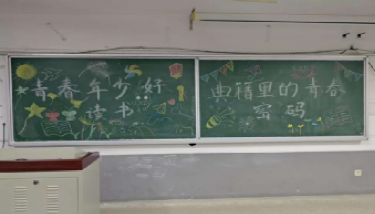 青春年少好
读书
典籍里的青春
密码